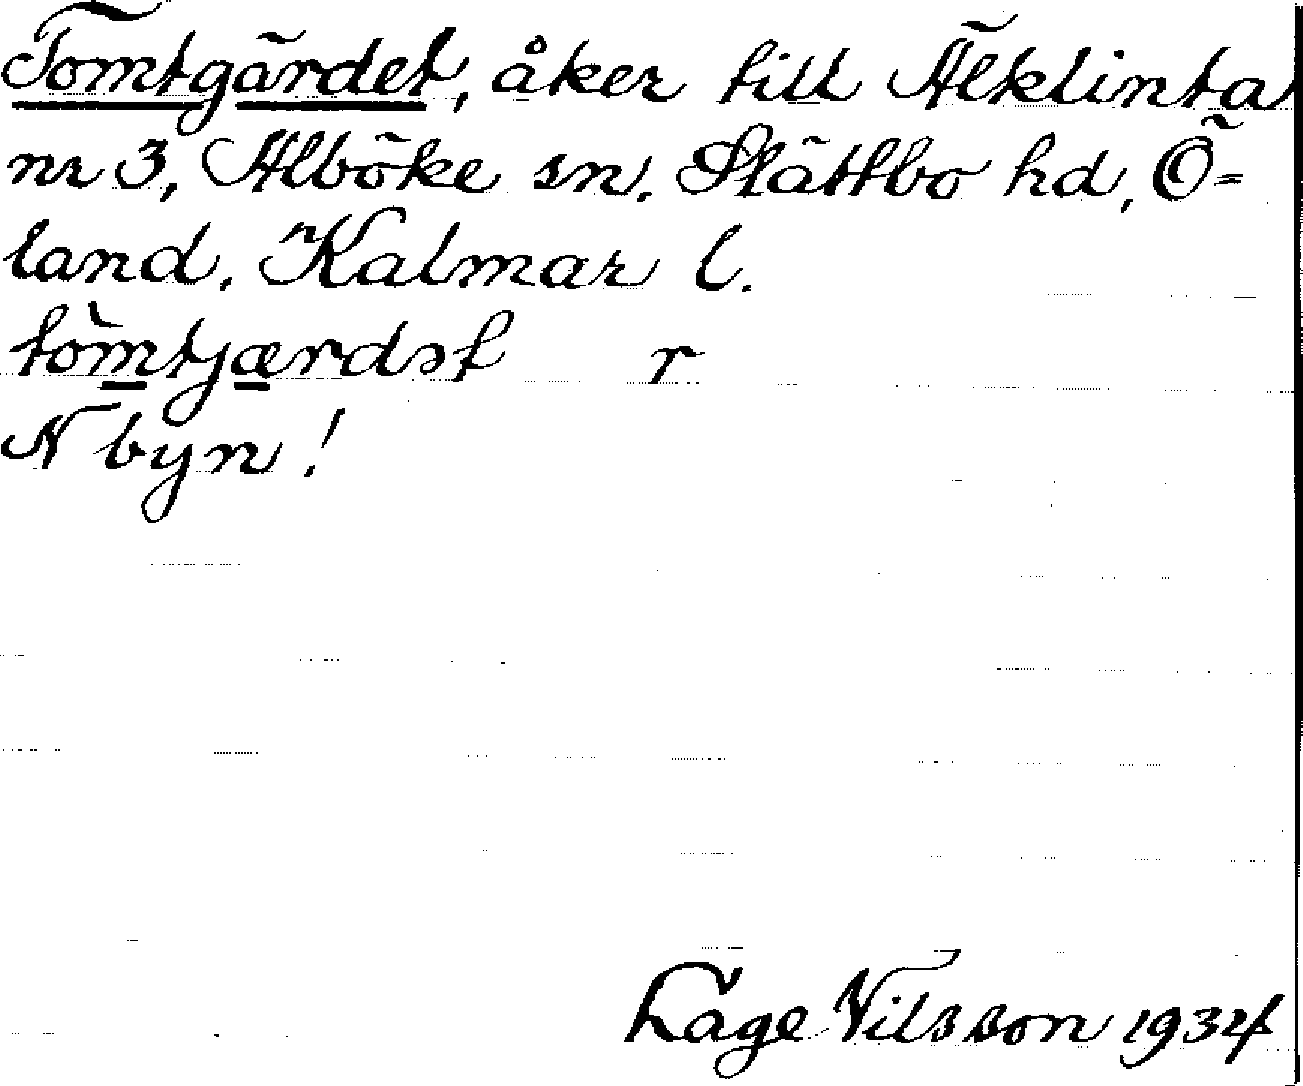 Tomtgärdet, åker till Älklinta
nr 3, Alböke sn, Slättbo hd, Ö-
land, Kalmar l.
tòmtjærdət r
N byn!
Tage Nilsson 1934